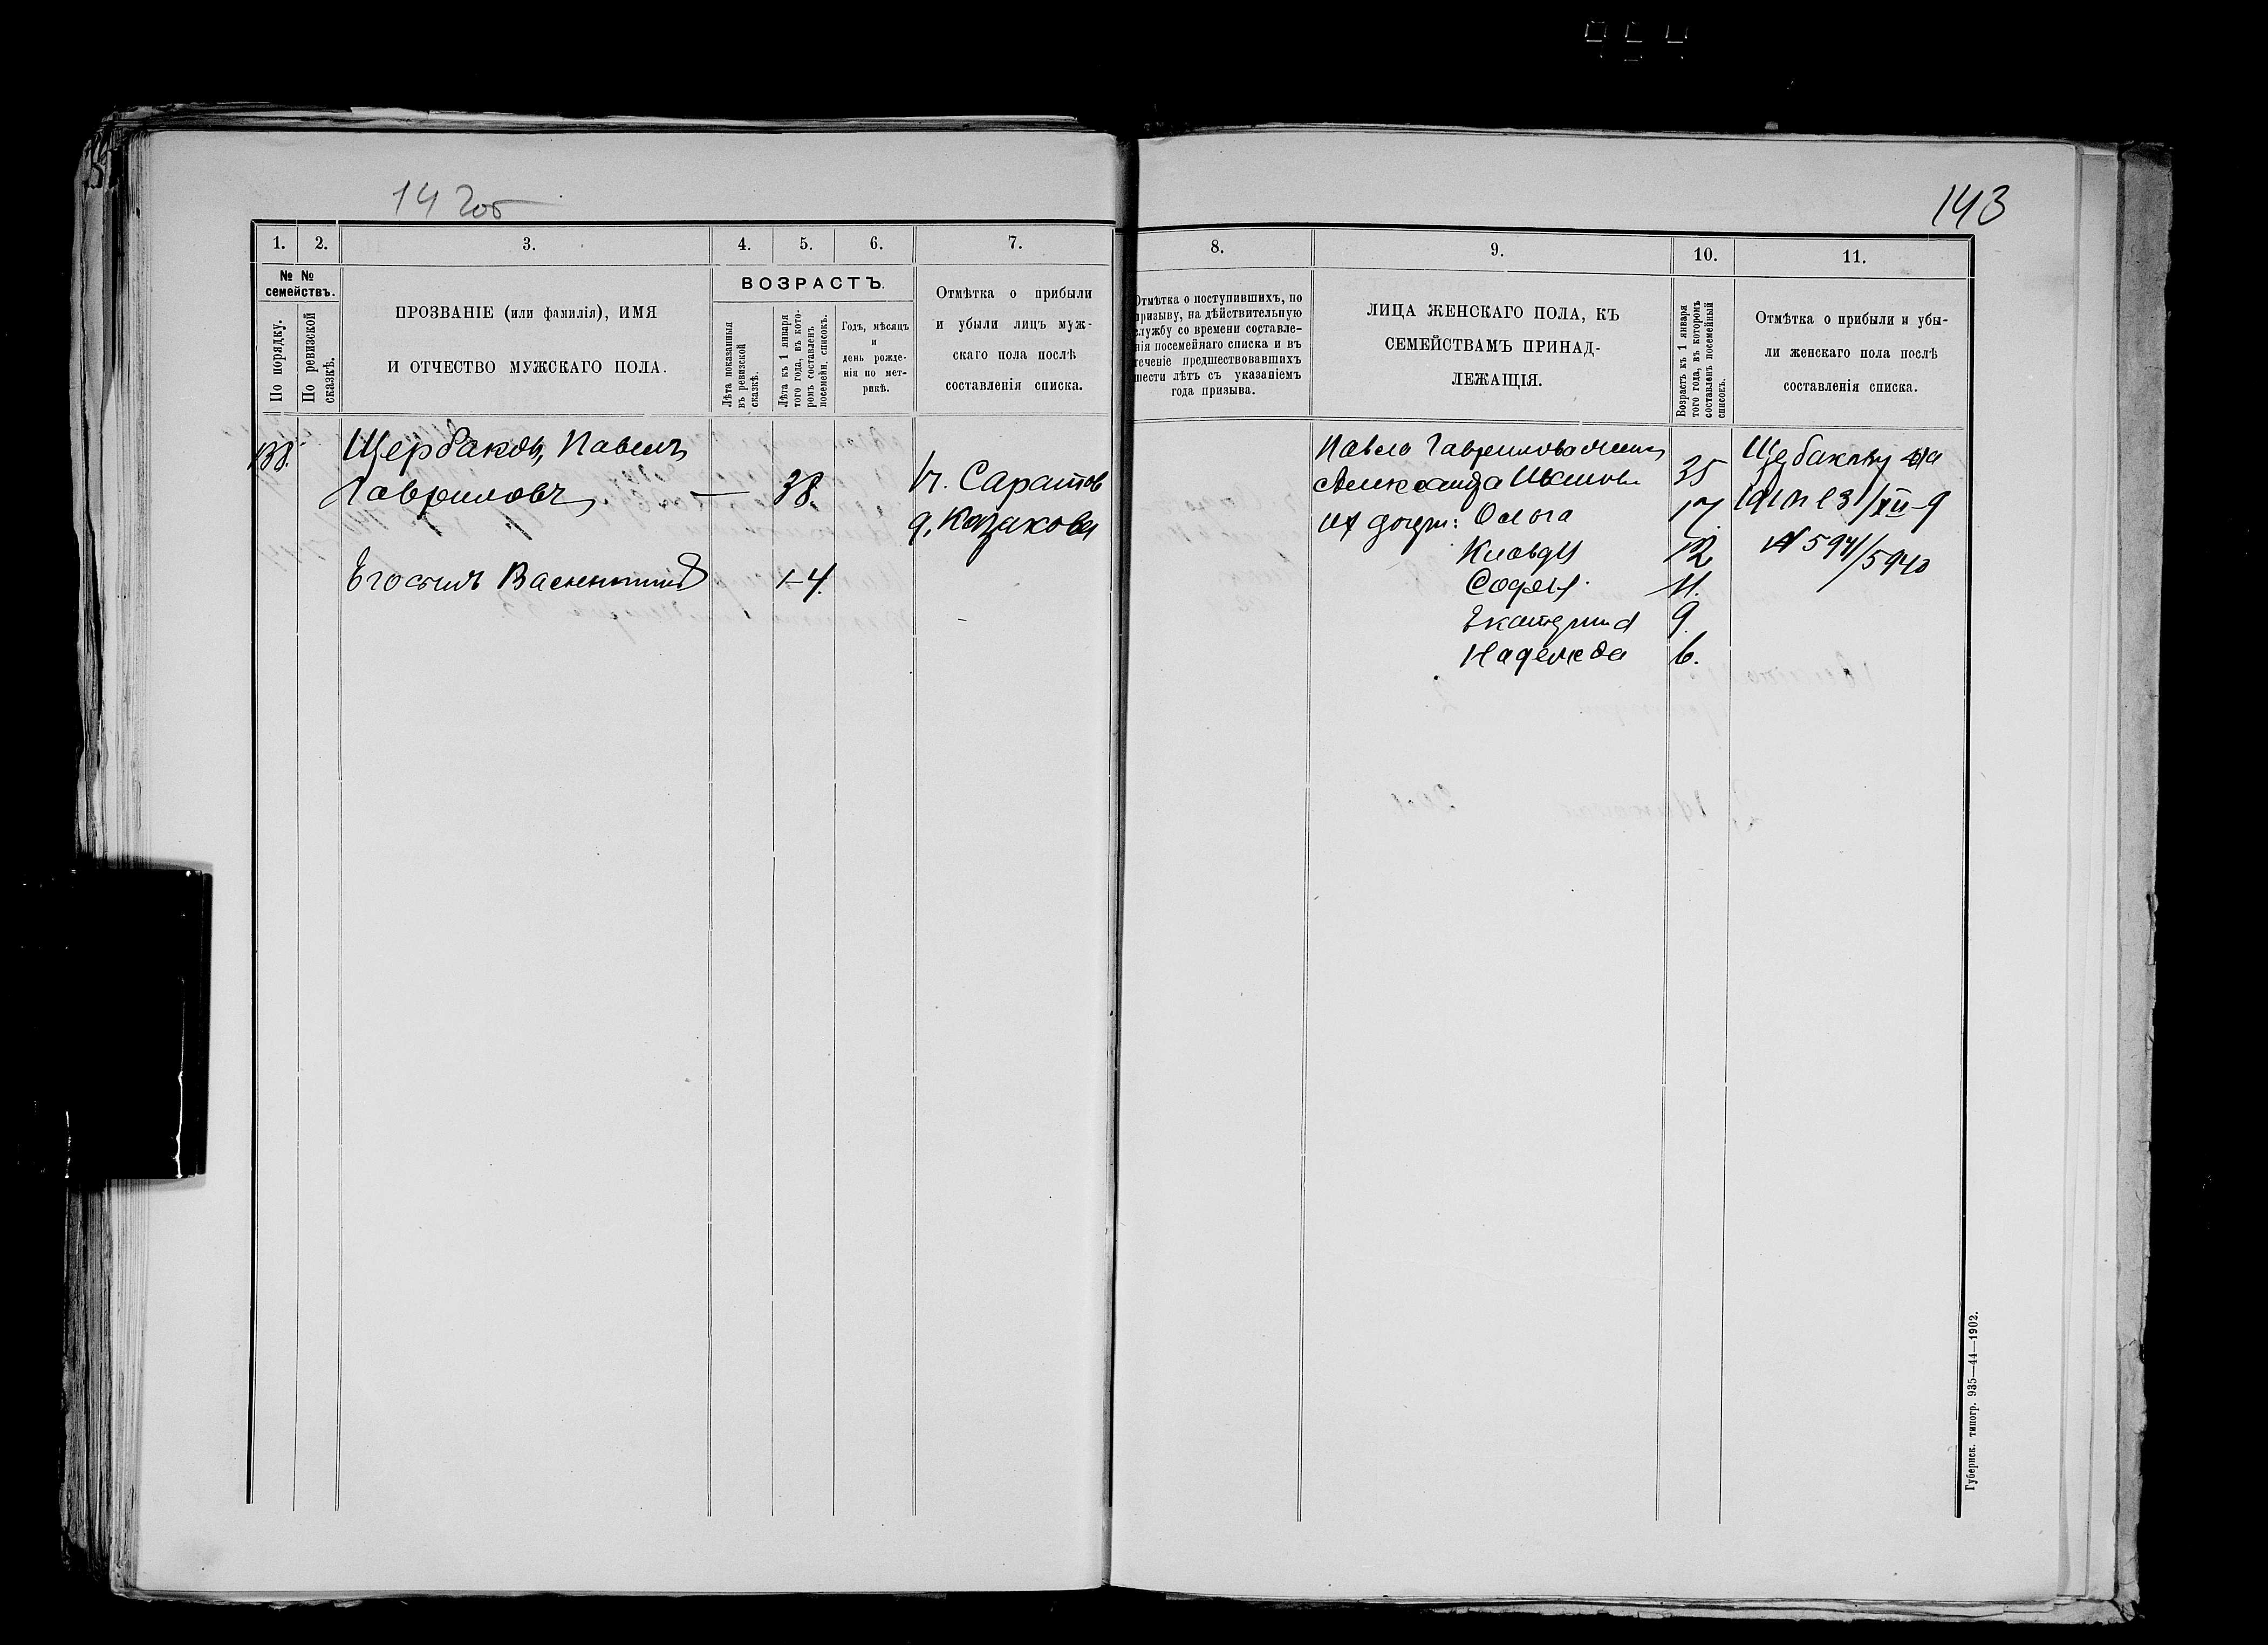 142об
1.
2.
3.
4.
5.
6.
7.
№ №
семействъ.
По порядку.
По ревизской
сказкѣ.
ПРОЗВАНІЕ (или фамилія), ИМЯ
И ОТЧЕСТВО МУЖСКАГО ПОЛА.
ВОЗРАСТЪ.
Лѣта показанныя
въ ревизской
сказкѣ.
Лѣта къ 1 января
того года, въ кото-
ромъ составленъ
посемейн. списокъ.
Годъ, мѣсяцъ
и
день рожде-
нія по мет-
рикѣ.
Отмѣтка о прибыли
и убыли лицъ муж-
скаго пола послѣ
составленія списка.
138.
Щербаковъ, Павелъ
Гавриловъ. — 38.
г. Саратов
д. Казакова
Его сынъ 14.
143
8.
9.
10.
11.
Отмѣтка о поступившихъ, по
призыву, на дѣйствительную
службу со времени составле-
нія посемейнаго списка и въ
теченіе предшествовавшихъ
шести лѣтъ съ указаніемъ
года призыва.
ЛИЦА ЖЕНСКАГО ПОЛА, КЪ
СЕМЕЙСТВАМЪ ПРИНАД-
ЛЕЖАЩІЯ.
Возрастъ къ 1 января
того года, въ которомъ
составленъ посемейный
списокъ.
Отмѣтка о прибыли и убы-
ли женскаго пола послѣ
составленія списка.
Павла Гаврилова жена
Александра 35
их дочери: Ольга 17
Клавдія 12
Софья 11.
Екатерина 9.
Надежда 6.
Щербакову
31/XII-9
№ 5941/5940
Губернск. типогр. 935—44—1902.